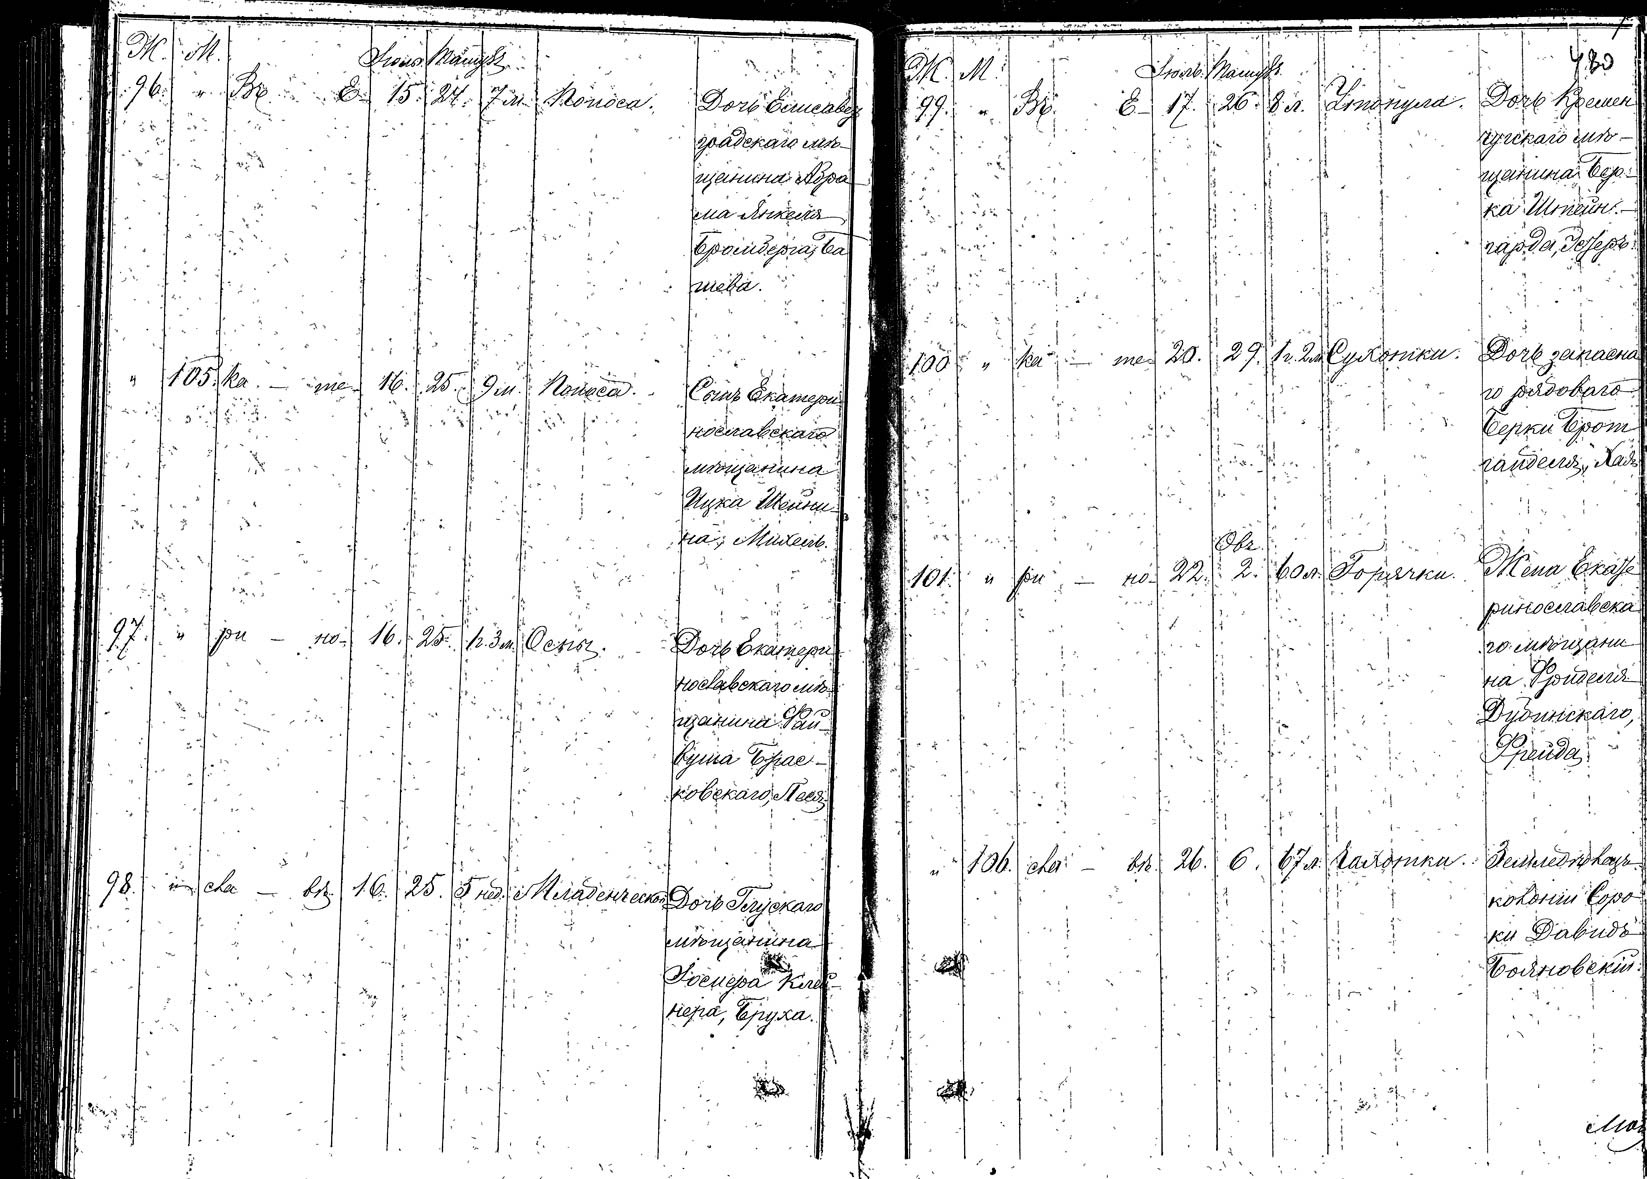 Ж. М. Іюль. Тамузъ
96. " Въ Е- 15. 24. 7 м. Поноса. Дочь Елисавет
градскаго мѣ-
щанина Абра
ма Янкеля
Бромберга, Ба
шева.
" 105. ка - те- 16. 25. 9 м. Поноса. Сынъ Екатери
нославскаго
мѣщанина
Ицка Шейни
на, Михель.
97. " ри - но- 16. 25. 1 г. 3 м. Оспы. Дочь Екатери
нославскаго мѣ-
щанина Фай-
вуша Брас-
ковскаго, Песя
98. " сла - вѣ 16. 25. 5 нед. Младенческой Дочь Глускаго
мѣщанина
Іосифа Клей-
нера, Бруха.
480
Ж. М. Іюль. Тамузъ
99. " Въ Е- 17. 26. 8 л. Утонула. Дочь Кремен
чугскаго мѣ-
щанина Бер-
ка Штейн-
гарда, Эстеръ.
100 " ка - те- 20. 29. 1 г. 2 м. Сухотки. Дочь запасна
го рядоваго
Берки Брот
ганделя, Хая
Овъ
101. " ри - но- 22. 2. 60 л. Горячки. Жена Екате
ринославска
го мѣщани
на Фриделя
Дубинскаго,
Фрейда
" 106. сла - вѣ 26. 6. 67 л. Чахотки. Земледѣлецъ
колоніи Соро
ки Давидъ
Бояновскій.